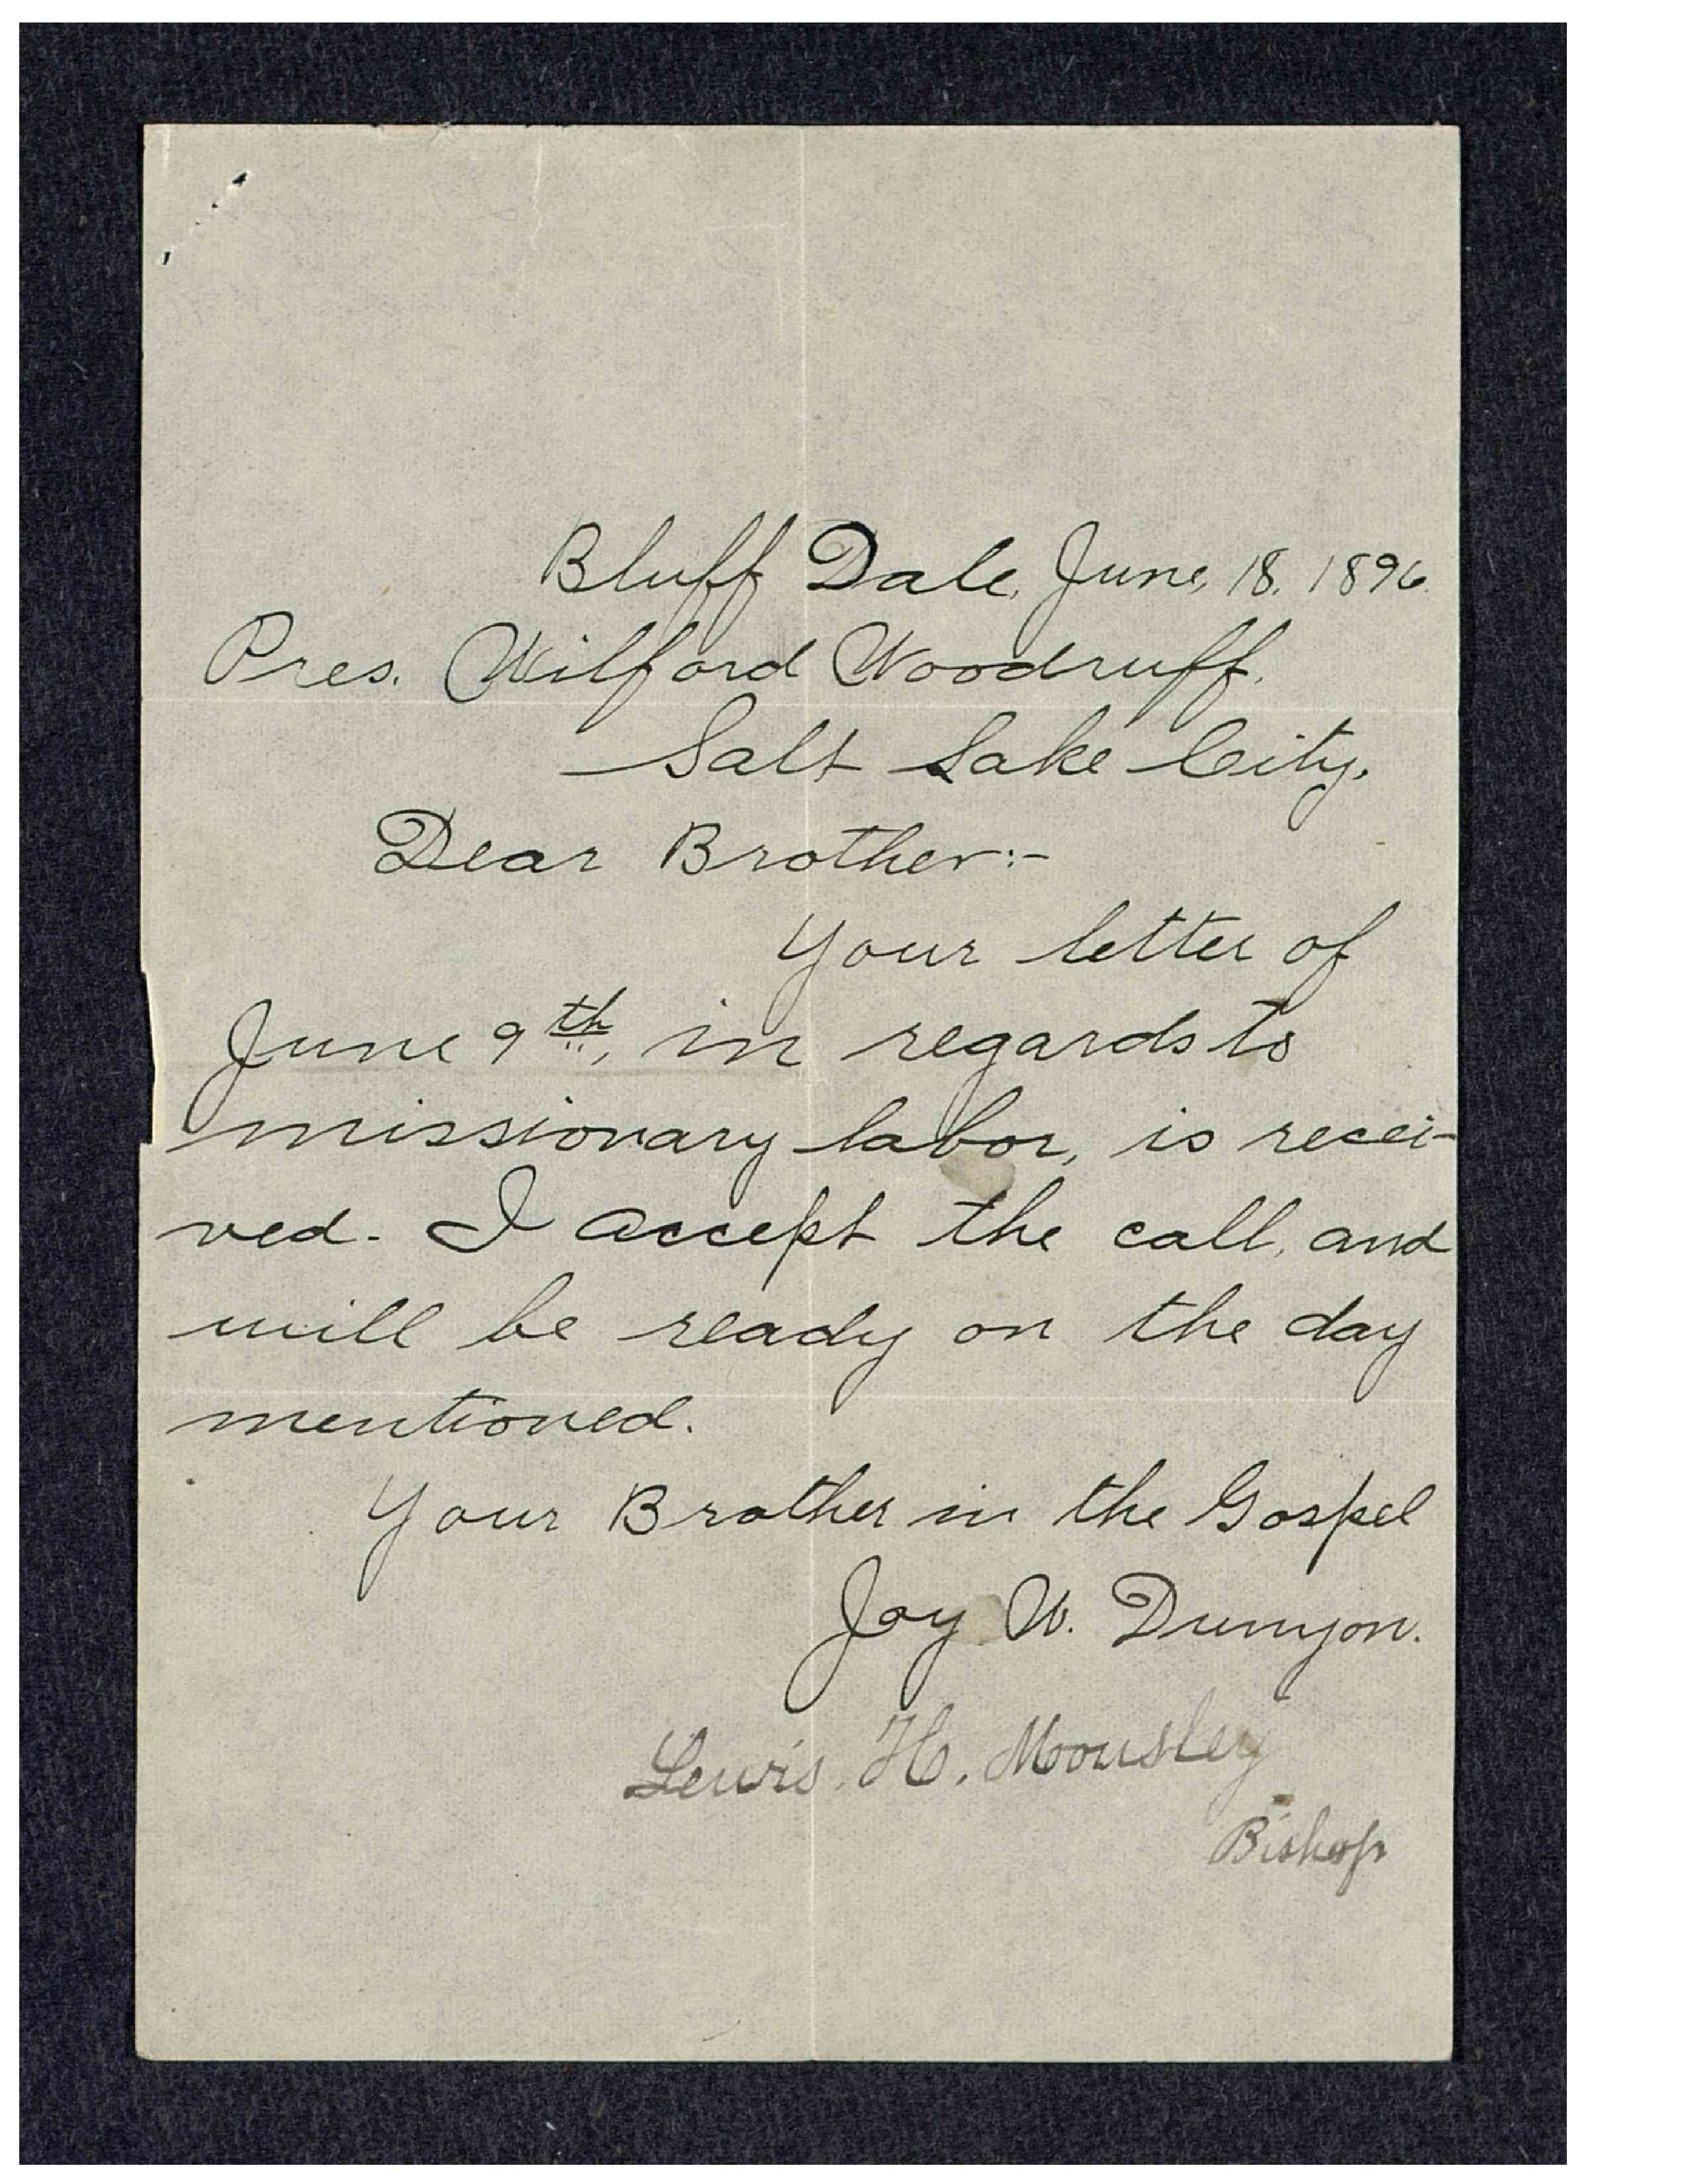 Bluff Dale, June, 18, 1896.
Pres. Wilford Woodruff.
Salt Lake City.
Dear Brother:-
Your letter of
June 9th, in regards to
missionary labor, is recei-
ved. I accept the call, and
will be ready on the day
mentioned.
Your Brother in the Gospel
Joy W. Dunyon.
Lewis. H. Mousley
Bishop